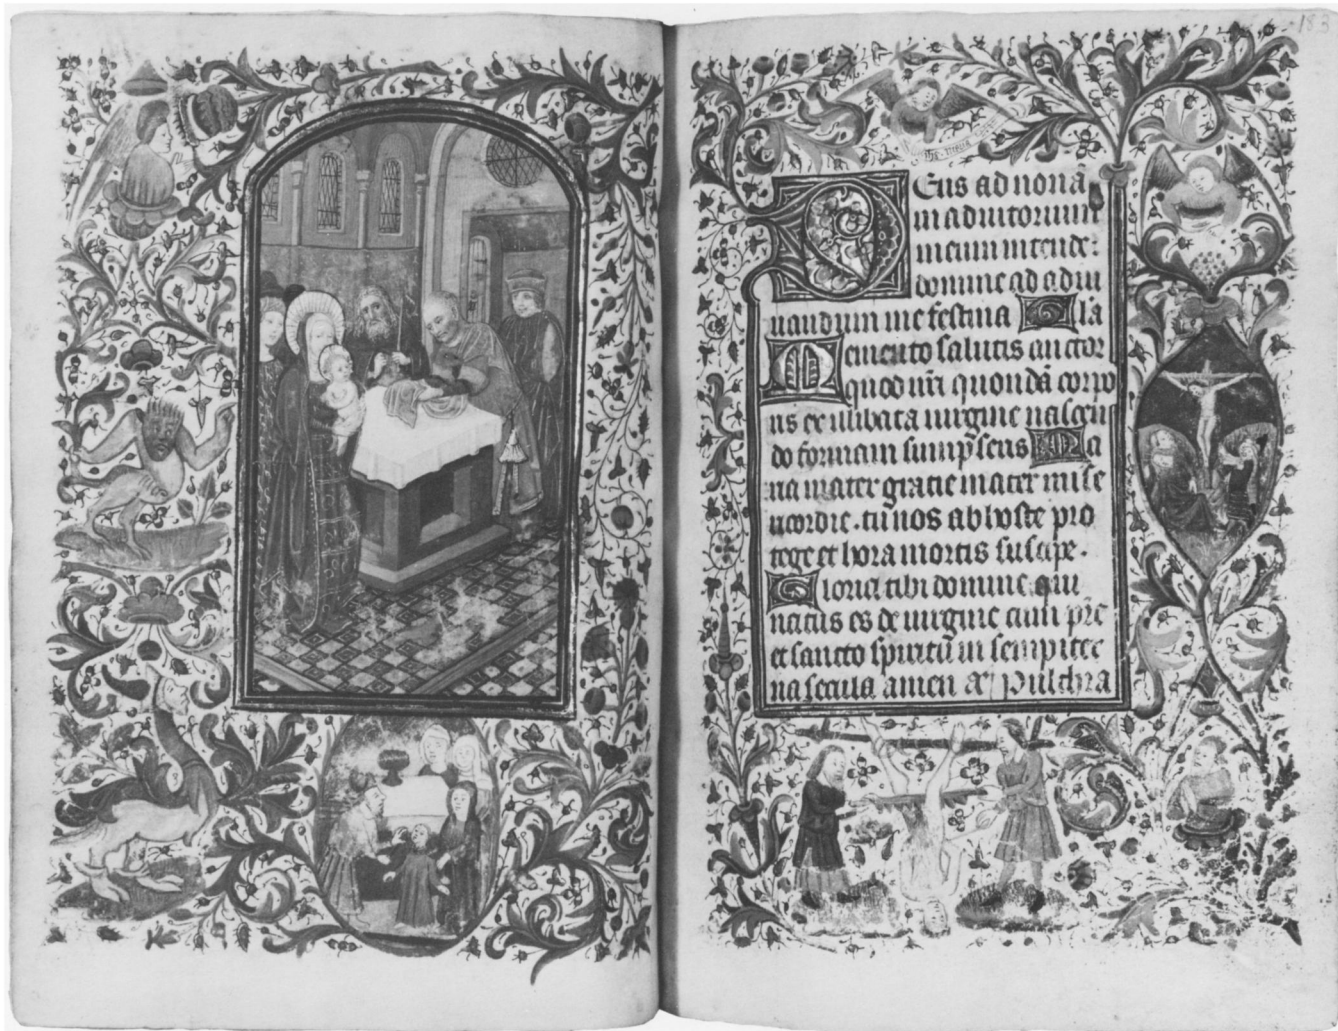 183
Deus ad nona
m adiutorium
meum intende:
domine ad adiu
uandum me festina Gla
Memento salutis auctor
quod nr̃i quondã corpo
ris ex illibata uirgine nascen
do formam sumpseris Ma
ria mater gratie mater mise
ricordie. tu nos ab hoste pro
tege et hora mortis suscipe.
Gloria tibi domine qui
natus es de uirgine cum pr̃e
et sancto spiritu in sempiter
na secula amen a Pulchra